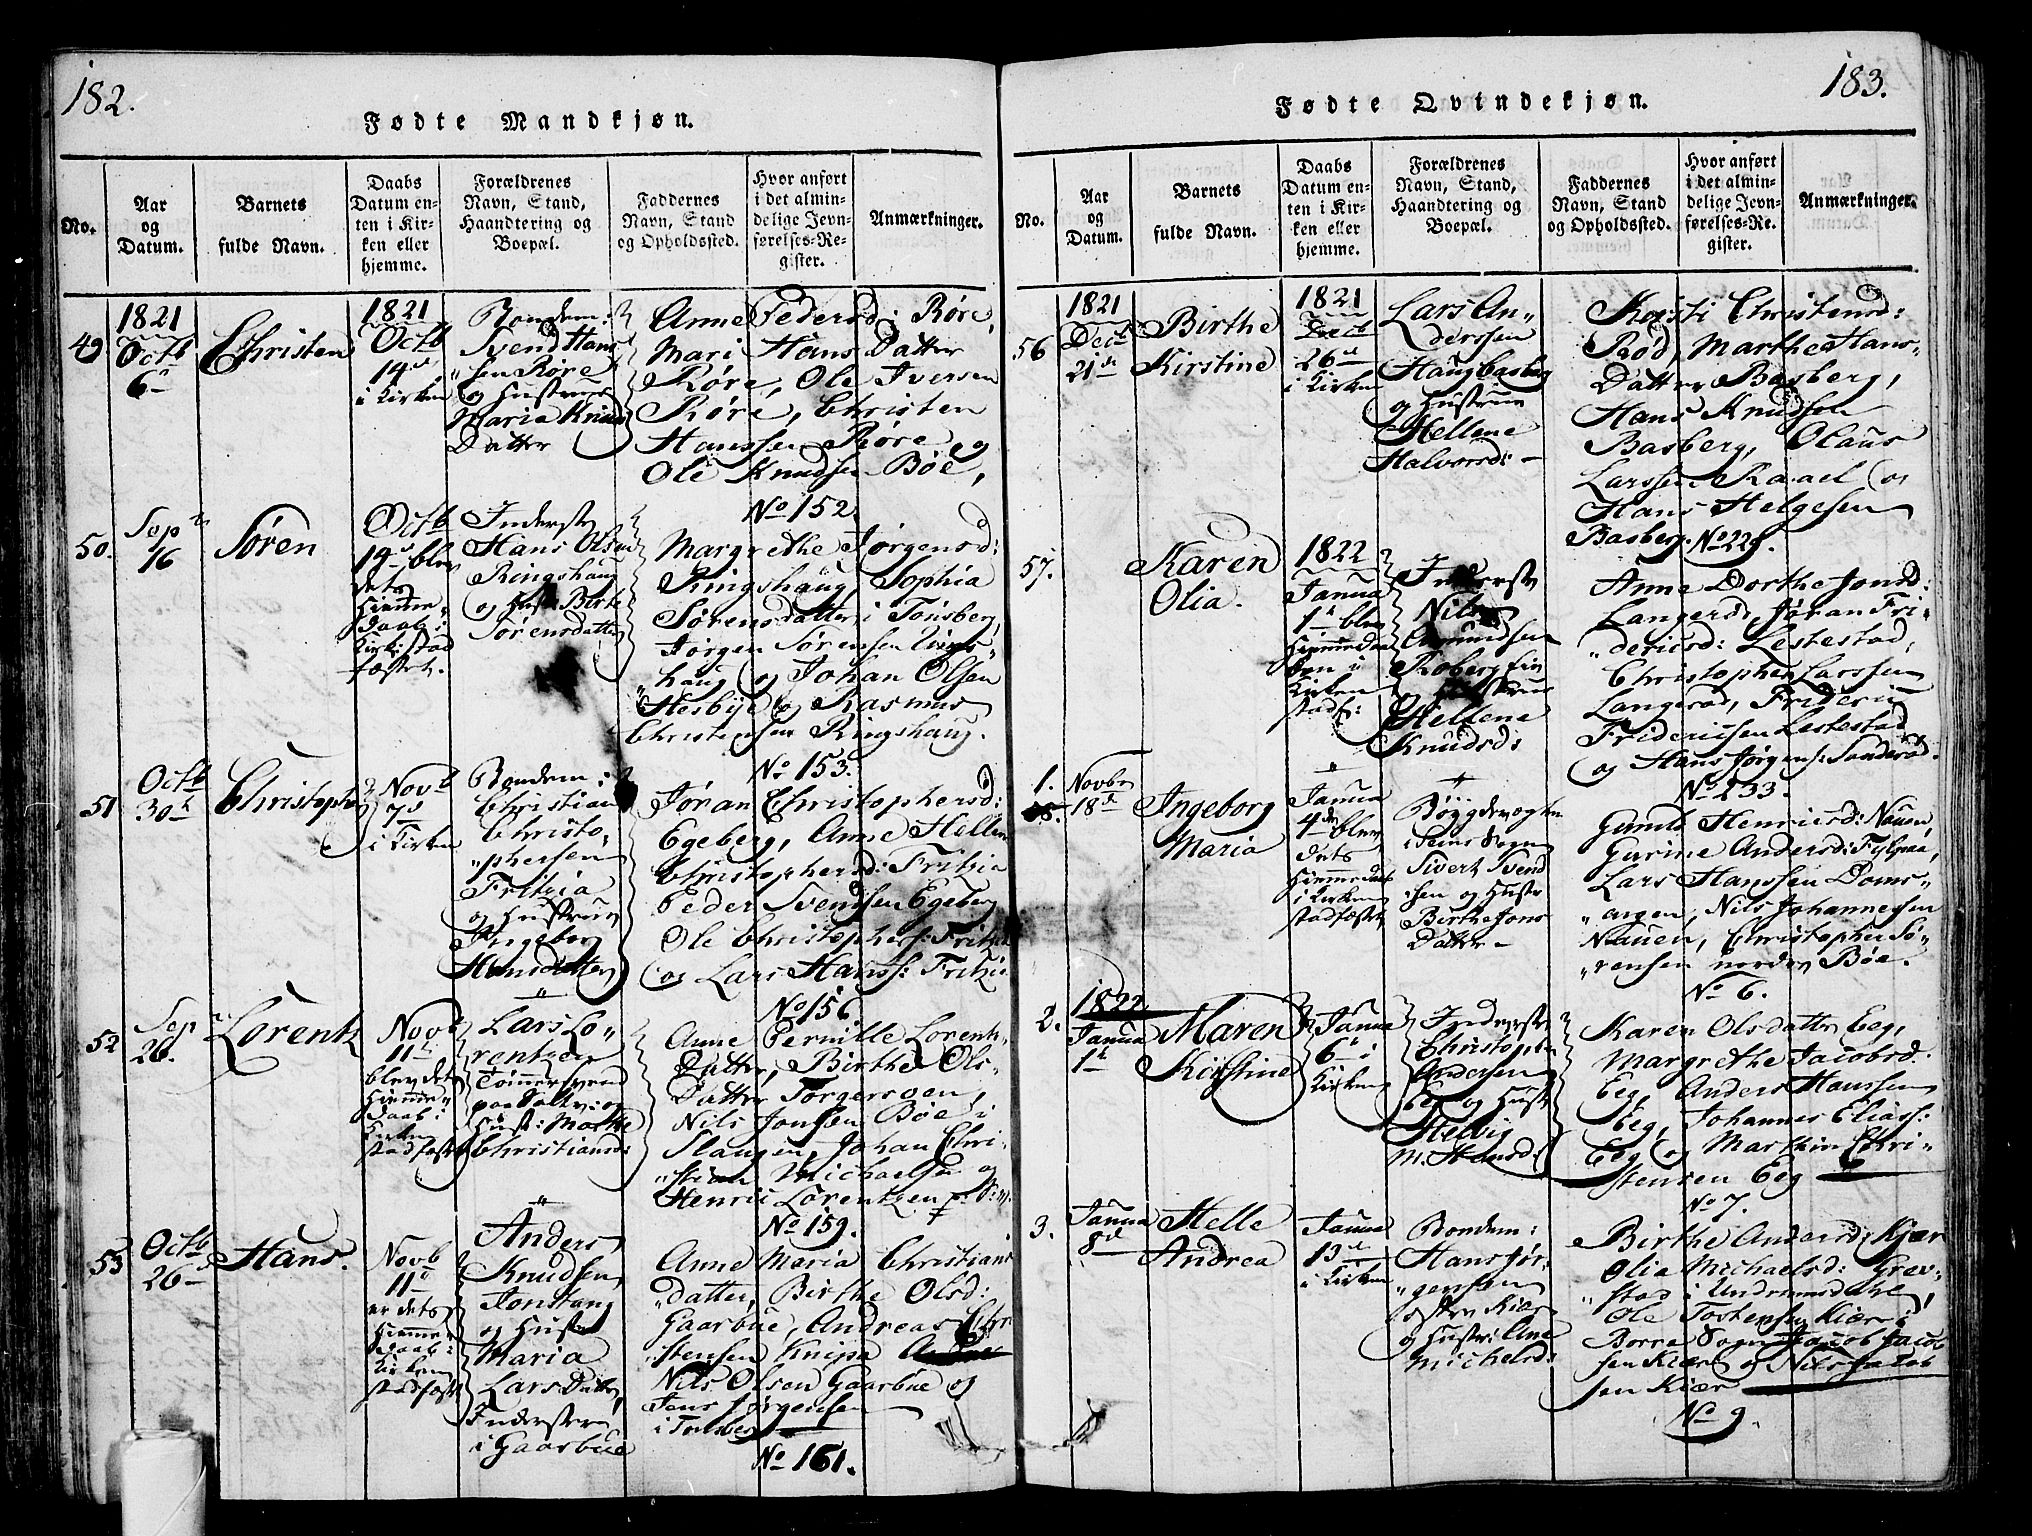 182.
Fødte Mandkjøn.
No.
Aar
og
Datum.
Barnets
fulde Navn.
Daabs
Datum en-
ten i Kir-
ken eller
hjemme.
Forældrenes
Navn, Stand,
Haandtering og
Boepæl.
Faddernes
Navn, Stand
og Opholdssted.
Hvor anført
i det almin-
delige Jevn-
førelses-Re-
gister.
Anmærkninger.
49
1821
Octb
6
Christen
1821
Octb
14
i Kirken
Bondem:
Svend Hans
sen Røre
og Hustrue
Maria Knuds
Datter
Anne Pedersd: Røre,
Mari Hans Datter
Røre, Ole Iversen
Røre, Christen
Hanssen Røre og
Ole Knudsen Bøe,
No 152
50.
Sep
16
Søren
Octb
14 blev
dets
Hiemme
daab i
Kirk: stad
fæstet.
Inderste
Hans Olsen
Ringshaug
og Hust: Birte
Sørensdatter
Margrethe Jørgensd:
Ringshaug, Sophia
Sørensdatter i Tønsberg,
Jørgen Sørensen Rings-
haug og Johan Olsen
Hesbye og Rasmus
Christensen Ringshaug.
No 153.
51
Octb
30
Christopher
Novb
7
i Kirken
Bondem:
Christian
Christo-
phersen
Fritzia
og Hustrue
Ingeborg
Hansdatter
Jøran Christophersd:
Egeberg, Anne Hellene
Christophersd: Fritzia
Peder Svendsen Egeberg
Ole Christophers: Fritzia
og Lars Hanss: Fritzia
No 156.
52
Sep
26.
Lorentz
Novb
11
blev det
Hiemme
daab i
Kirken
stadfæst
Lars Lo-
rentzen
Tømmersvend
paa Valløe og
Hust: Marthe
Christiansd:
Anne Pernille Lorentz
Datter, Birthe Ols-
Datter Torgersøen,
Nils Jonsen Bøe i
Slagen, Johan Chri-
stian Michaelsen og
Henric Lorentzen
No 159.
53
Octb
26
Hans.
Novb
11
er dets
Hiemme
daab i
Kirken
stadfæst
Anders
Knudsen
Jonstang
og Hustr
Maria
Lars Datter
Indersten
i Gaarbue
Anne Maria Christians
datter, Birthe Olsd:
Gaarbue, Andreas Chri
stensen Knipa
Nils Olsen Gaarbue og
Jens Jørgensen
i Tønsberg
No 161.
183.
Fødte Qvindekjøn.
No.
Aar
og
Datum.
Barnets
fulde Navn.
Daabs
Datum en-
ten i Kir-
ken eller
hjemme.
Forældrenes
Navn, Stand,
Haandtering og
Boepæl.
Faddernes
Navn, Stand
og Opholdssted.
Hvor anført
i det almin-
delige Jevn-
førelses-Re-
gister.
Anmærkninger.
56
1821
Decb
21
Birthe
Kirstine
1821
Decb
26
i Kirken
Lars An-
derssen
Haugbasberg
og Hustrue
Hellene
Halvorsd:
Korsti Christensd:
Rød, Marthe Hans-
Datter Basberg,
Hans Knudsen
Basberg, Olaus
Larssen Raael og
Hans Helgesen
Basberg. No 228.
57.
Karen
Olia.
1822
Janua
1 blev
Hiemmedaa
ben i
Kirken
stadf:
Inderste
Nils
Amundsen
Roberg
og Hustrue
Hellene
Knudsd:
Anne Dorthe Jonsd:
Langerød, Jøran Fri-
dericsd: Lestestad,
Christopher Larssen
Langerød, Frideric
Fridericsen Lestestad
og Hans Jørgens: Sanderød.
No 233.
1.
Novbr
18
Ingeborg
Maria
Janua
4 blev
dets
Hiemmedaab
i Kirken
stadfæstet
Bøygdevægter
i Sems Sogn
Sivert Svend
sen og Hustr
Birthe Jons
Datter
Gunild Henricsd: Nauen,
Gurine Andersd: Fylpaa,
Lars Hanssen Doms-
Nils Johannesen
Nauen, Christopher Sø-
rensen nordre Bøe.
No 6.
2.
1822
Janua
1
Maren
Kirstine
Janua
6 i
Kirken
Inderste
Christopher
Andersen
Eeg og Hust
Helvig
M. Hansd:
Karen Olsdatter Eeg,
Margrethe Jacobsd:
Eeg, Anders Hanssen
Eeg, Johannes Eliass:
Eeg og Marthin Chri-
stensen Eeg
No 7.
3.
Janua
8
Helle
Andrea
Janua
13
i Kirken
Bondem:
Hans Jør-
gensen
østre Kiær
og Hustr: Ane
Michelsd:
Birthe Andersd: Kjær
Olia Michaelsd: Grev-
stad i Undrumsdahl,
Ole Tostensen Kiær i
Borre Sogn Jacob Jacob
sen Kiær og Nils Jacob
sen Kiær
No 9.